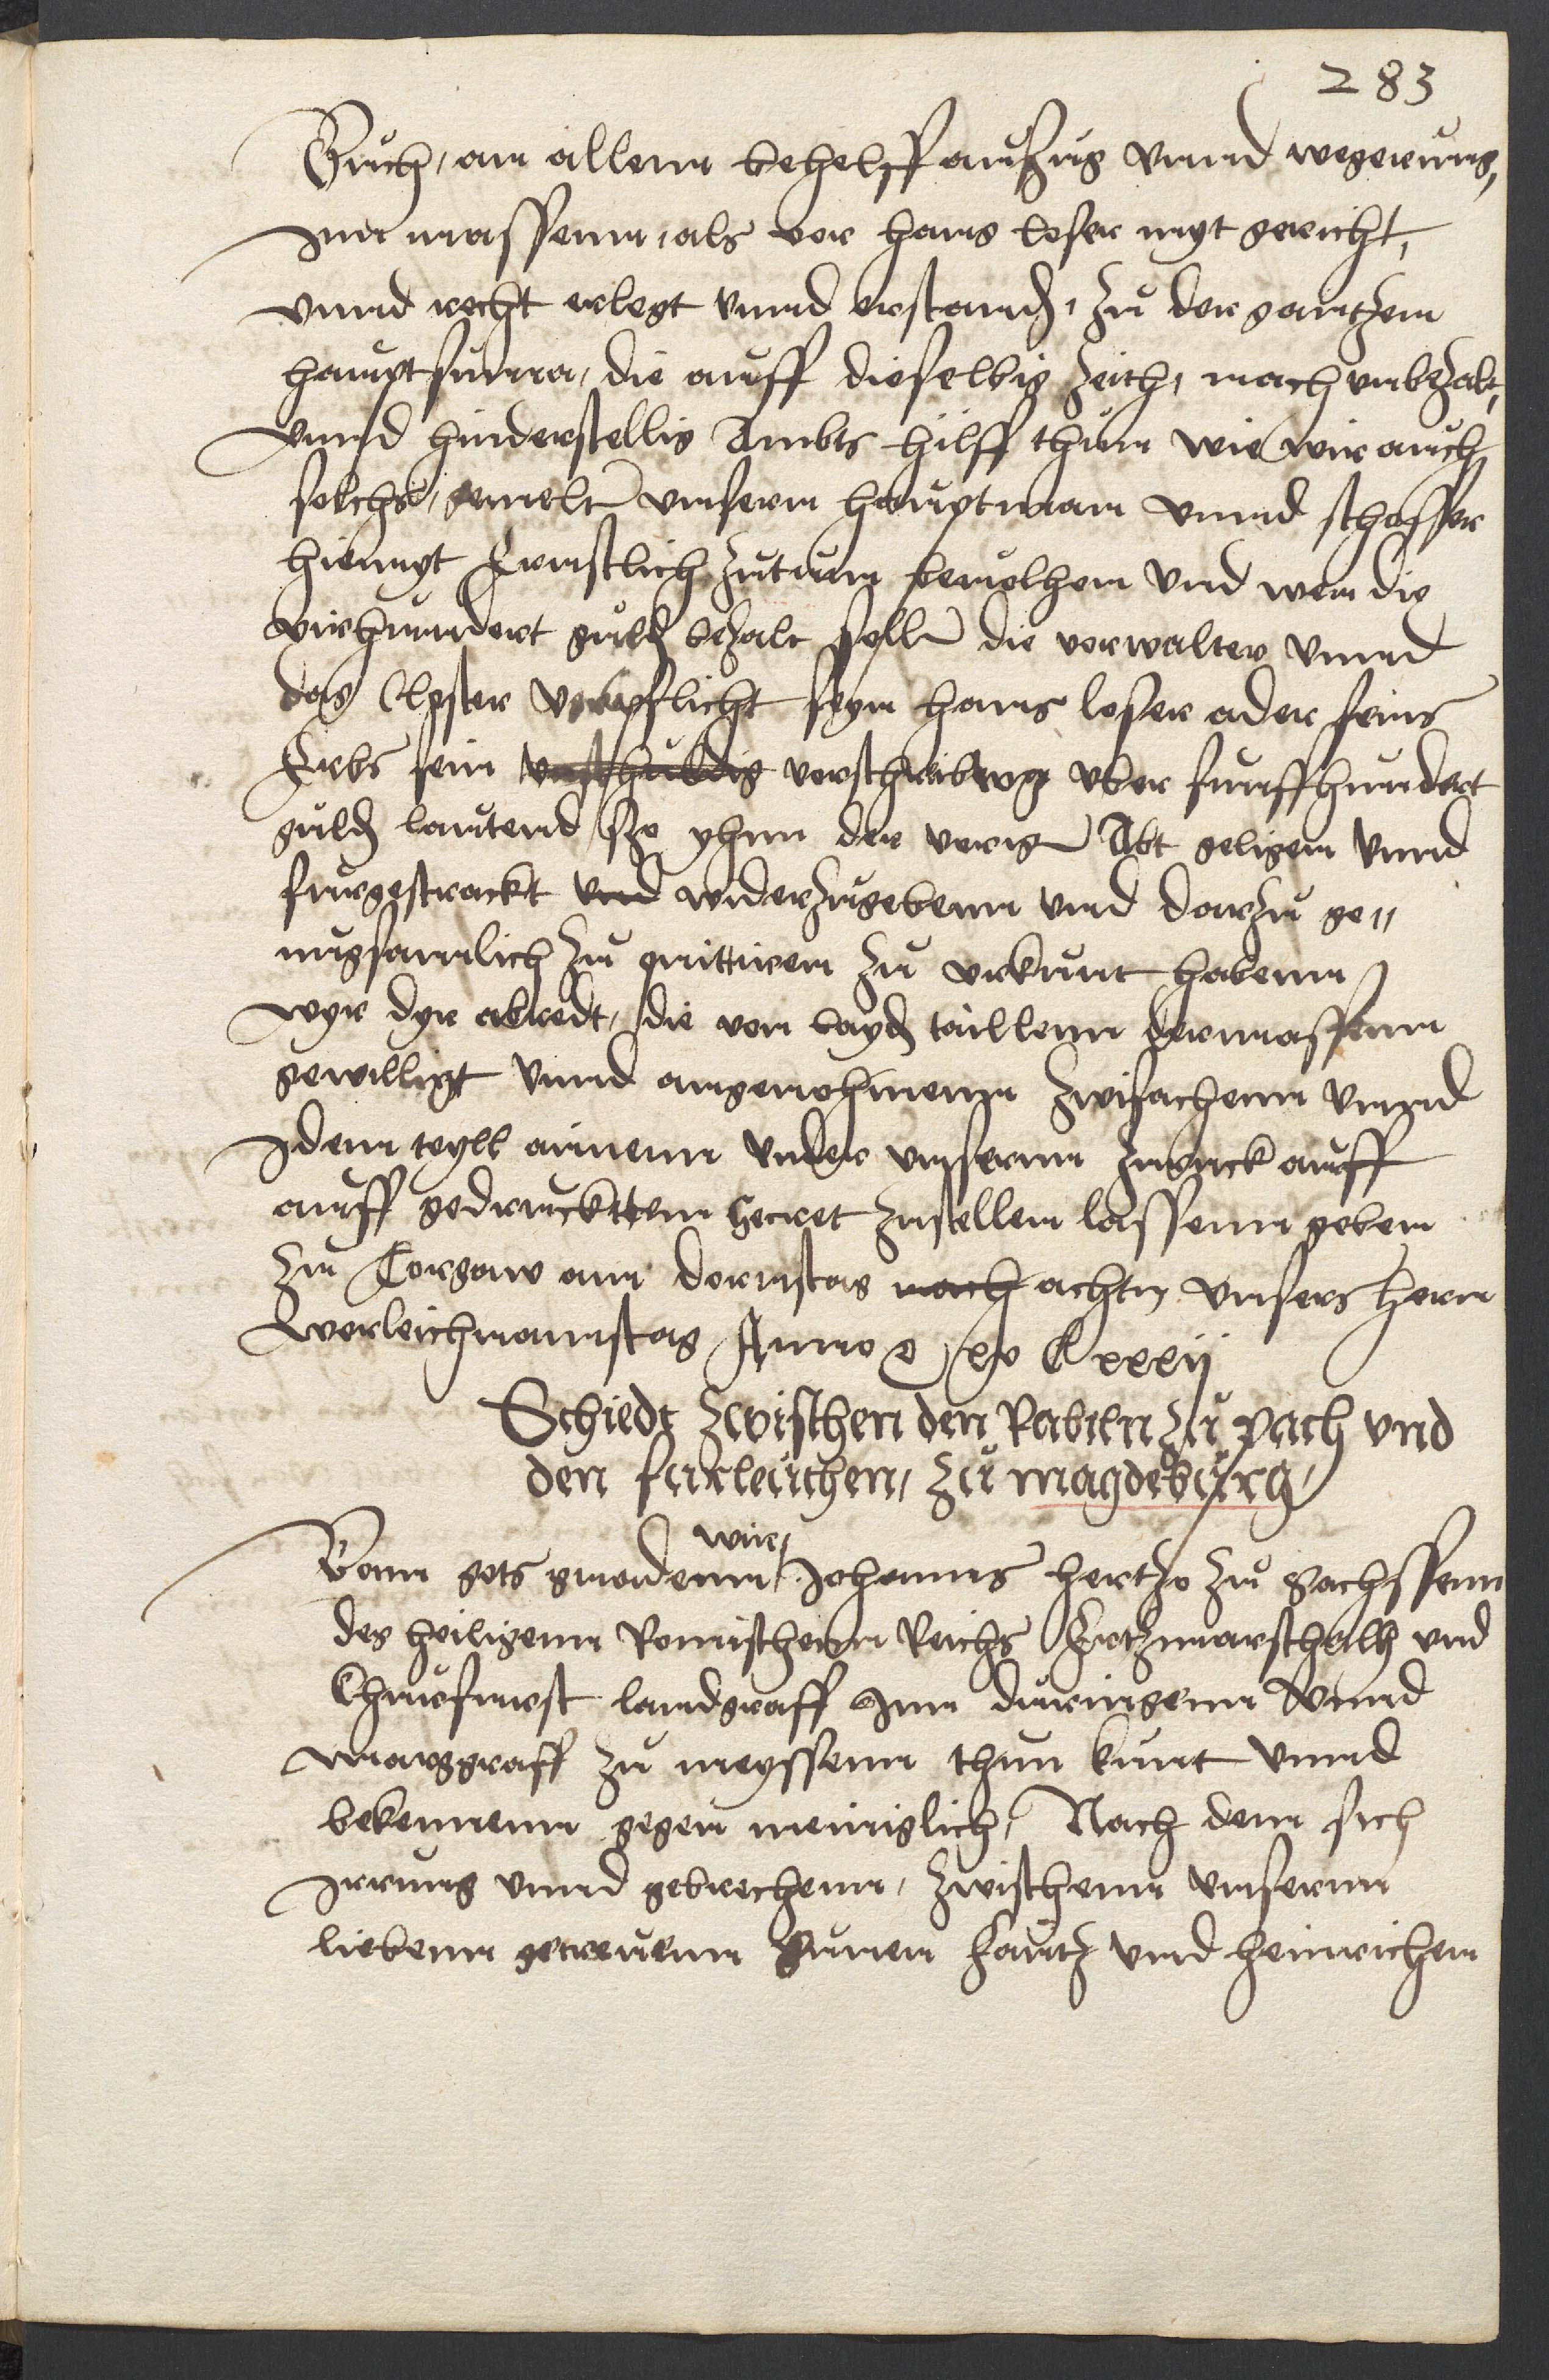 283
Gruch, an allenn behelff aufzug vnnd wegerung,
Inn massenn, als vor hans loser myt gericht,
vnnd recht erlegt vnnd erstand, zu der gantzen
hauptsumma, die auff dieselbig zeith, nach vnbezalt,
vnnd hinderstellig Ambts hilff thun wie wir auch
solchs, gemelt vnserm hauptman vnnd schosser
hiemyt Ernstlich zuthun bevolhen vnd wen die
vierhundert guld bezalt soll die vorwalter vnnd
das Closter vorpflicht seyn hans loser ader seins
Erbs sein vnschuldig vorschreibung vber funffhundert
guld lautend sso yhnn der vorig Abt geligen vnnd
furgestrackt vnd widerzugebenn vnd darzu ge=
nugsamlich zu quittiren zu vrkunt habenn
wyr dyr abredt, die von bayd taillenn dermassenn
gewilligt vnnd angenohmenn zwifachenn vnnd
Idem teyll ainenn vnder vnserm zuruck auff
auff gedrucktem Secret zustellen lassenn geben
zu Torgaw am dornstag nach achten vnsers hern
worleichnamstag Anno d xv C xxxij
Schiedt zwischen den Rabiln zu pach vnd
den furleuthen, zu magdeburg,
Vonn gots gnadenn wir, Johanns hertzo zu Sachssenn
des heiligenn Romischenn Reichs Ertzmarschalh vnd
Churfurst landgraff Inn duringenn vnnd
marggraff zu meyssenn thun kunt vnnd
bekennenn gegen meniglich, Nach dem sich
Irrung vnnd gebrechenn, zwischenn vnsernn
liebenn getreuenn Hansen Hantz vnd heinrichen